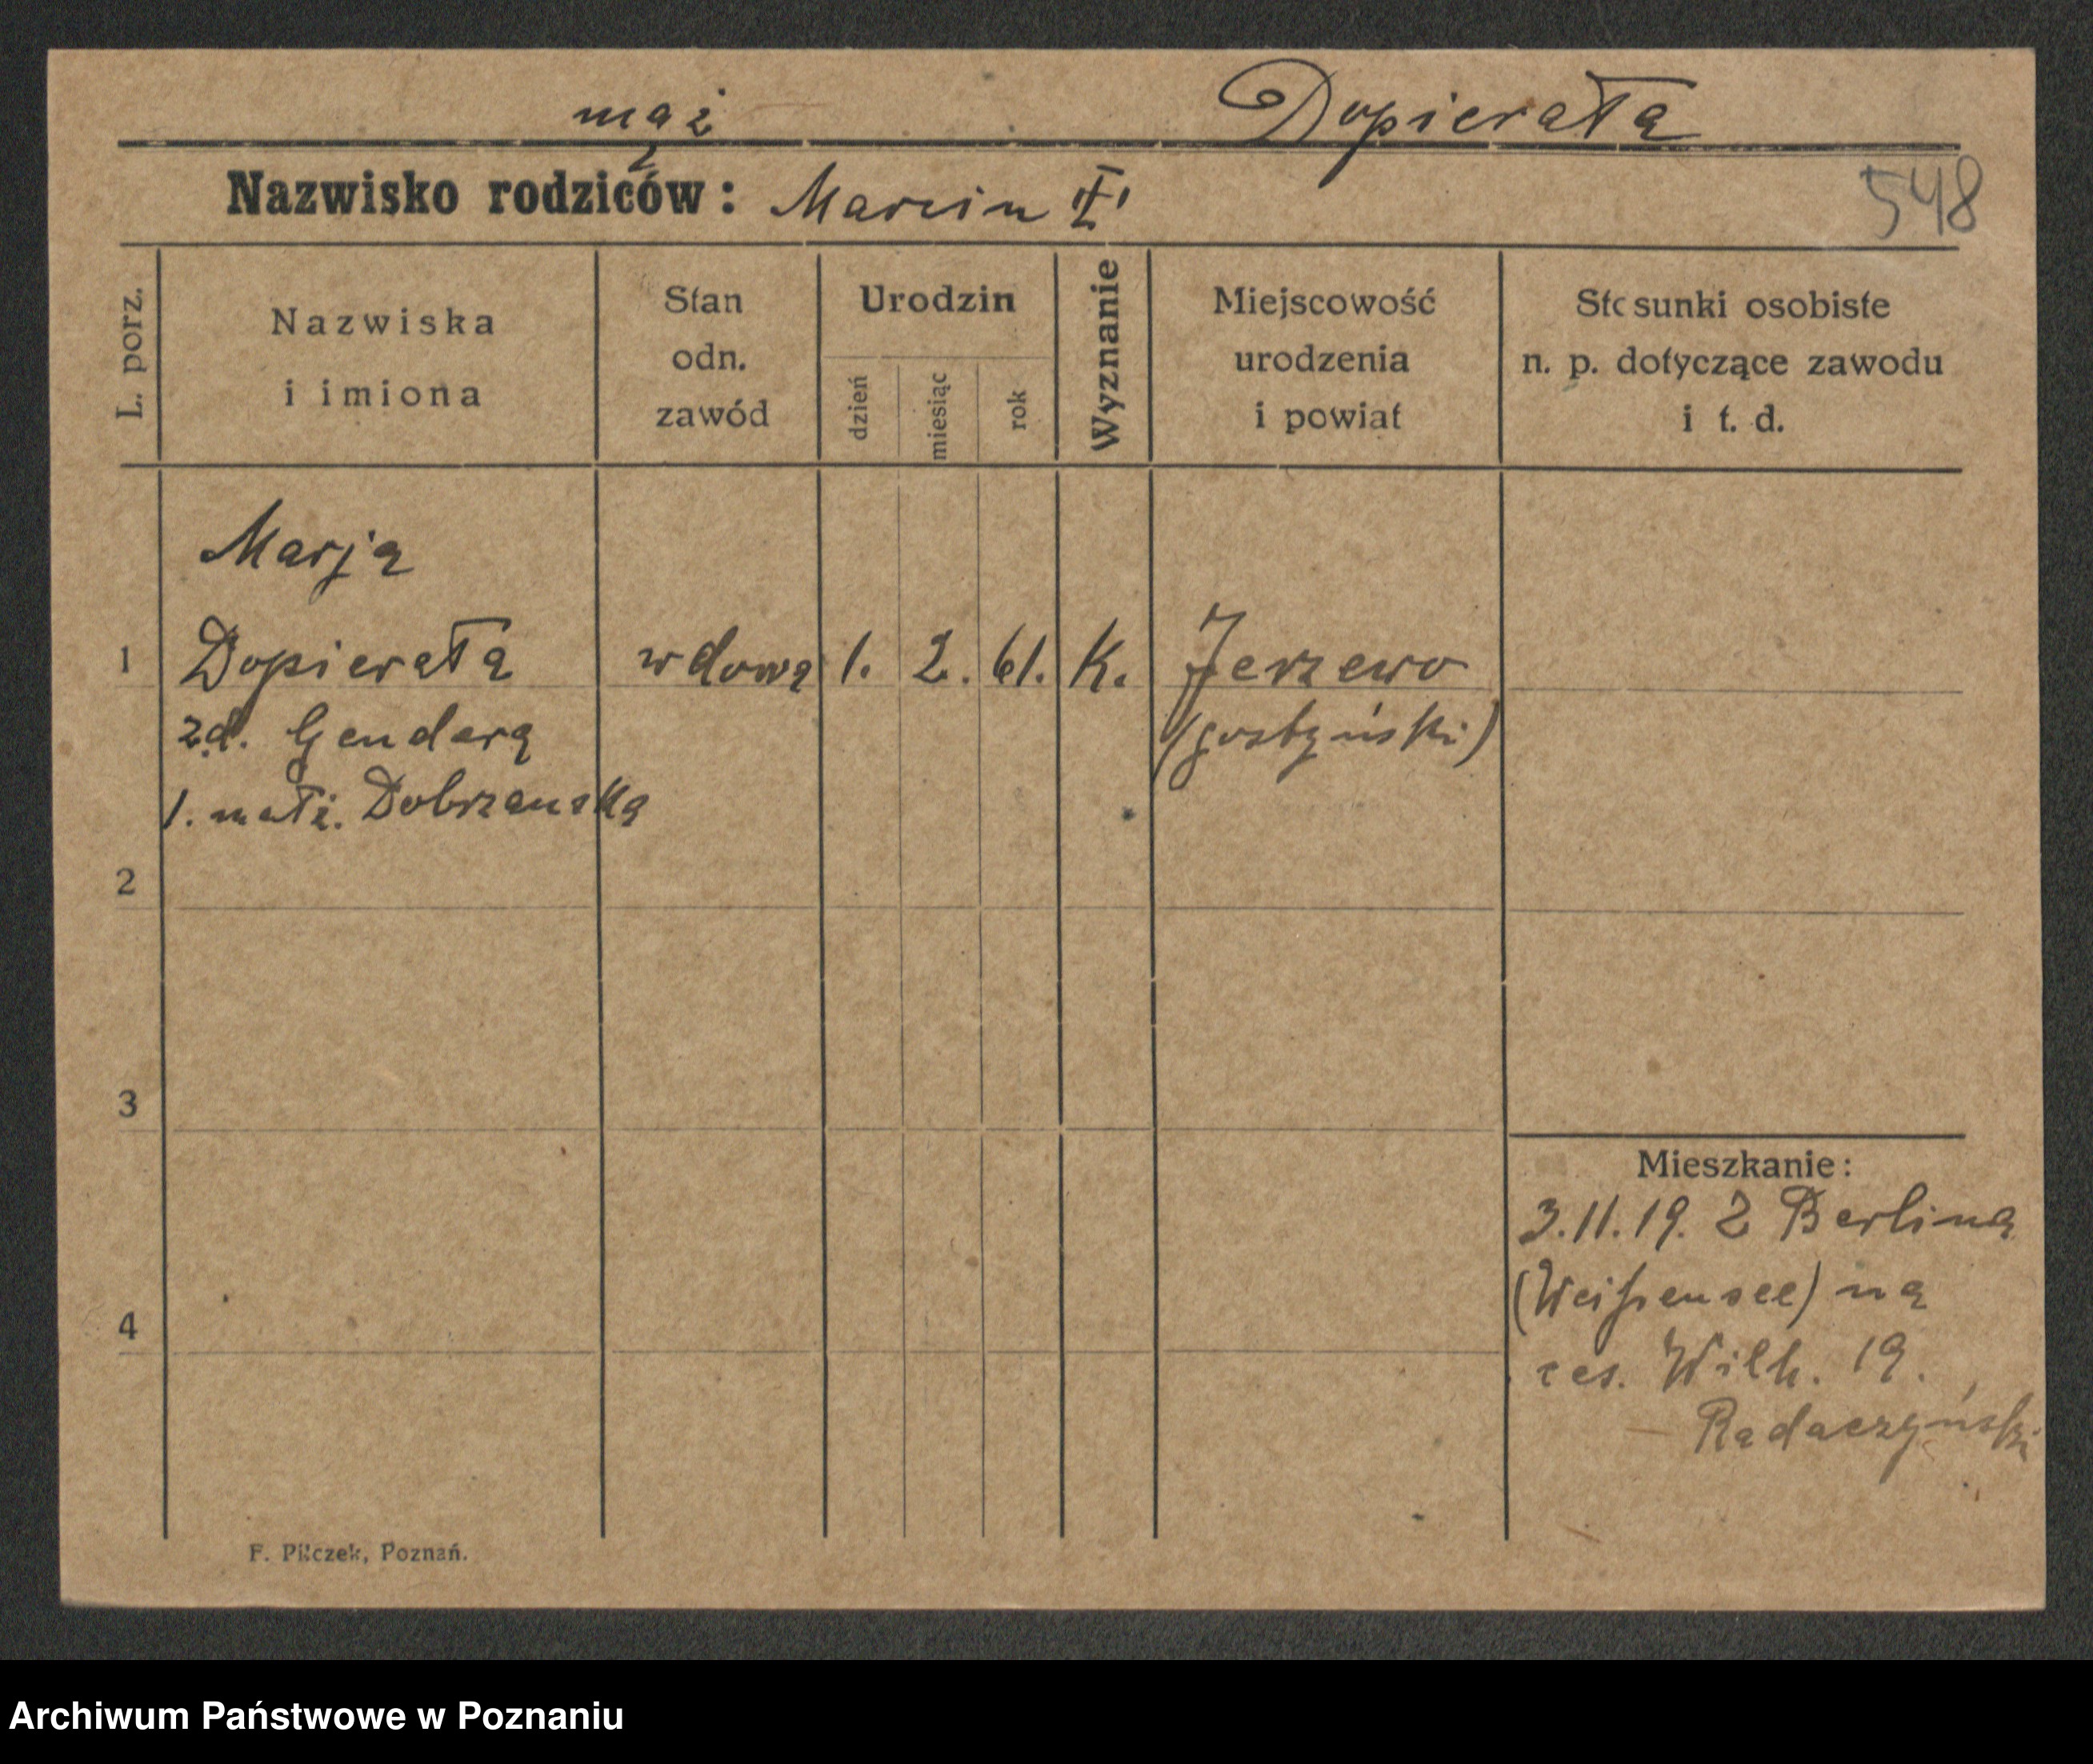 mąż Dopierała
Nazwisko rodziców: Marcin
548
L. porz.
Nazwiska
i imiona
Stan
odn.
zawód
Urodzin
dzień
miesiąc
rok
Wyznanie
Miejscowość
urodzenia
i powiat
Stosunki osobiste
n. p. dotyczące zawodu
i t. d.
Marja
1 Dopierała wdowa 1. 2. 61. K. Jerzewo
zd. Gendera (gostyński)
1. małż. Dobrzanska
2
3
4
Mieszkanie:
3.11.19. Z Berlina
(Weißensee) na
ces. Wilh. 19.
Radaczyński
F. Pilczek, Poznań.
Archiwum Państwowe w Poznaniu